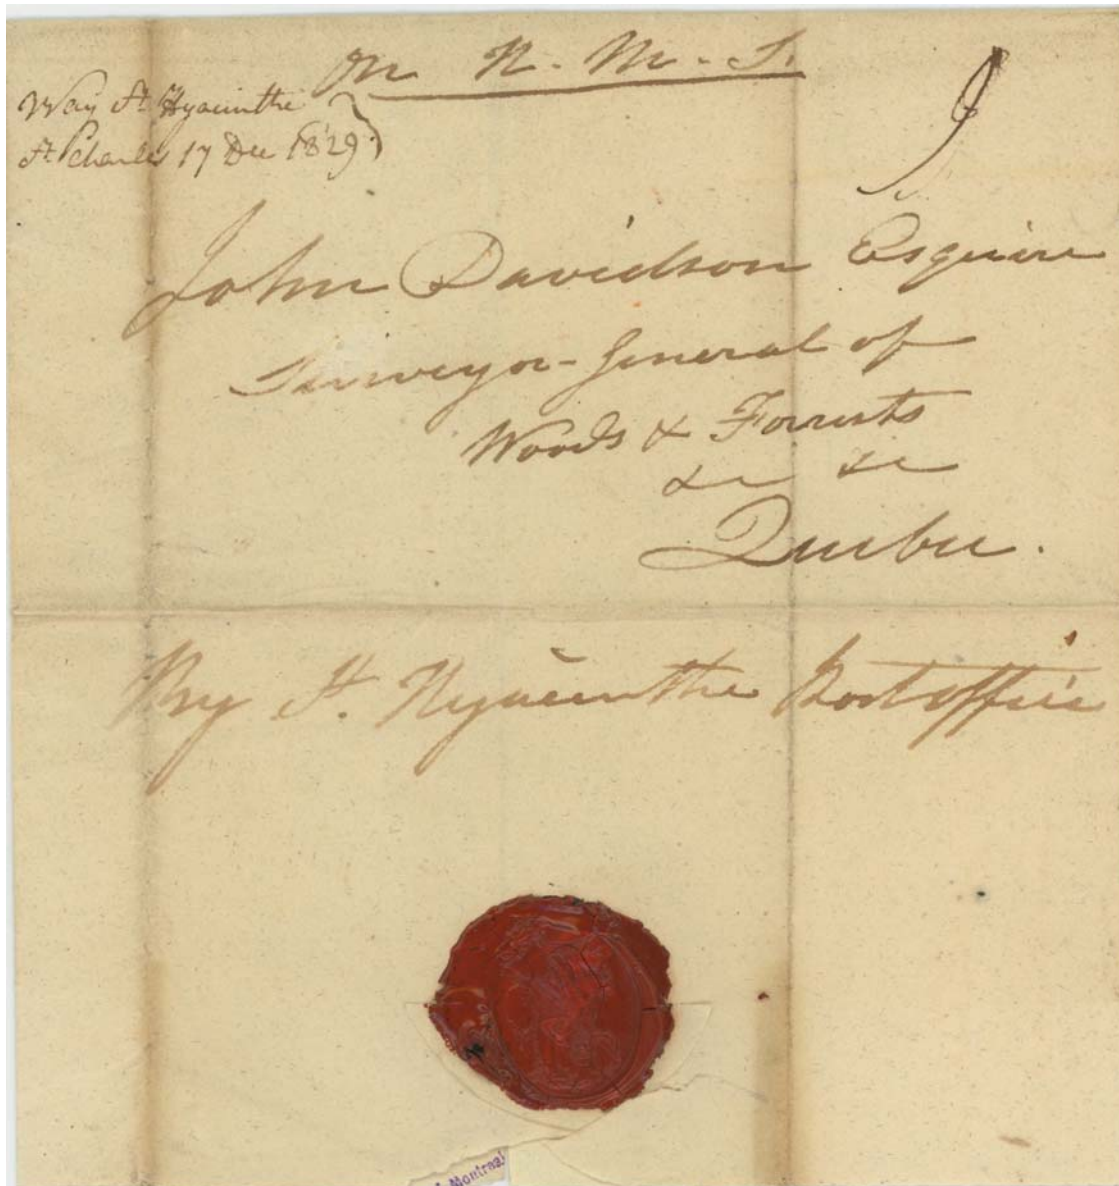 On H. M. S.
Way St Hyacinthe
St Charles 17 Dec 1829
John Davidson Esquire
Surveyor-General of
Woods & Forrests
&c &c
Quebec.
By St. Hyacinthe Post office
Montreal